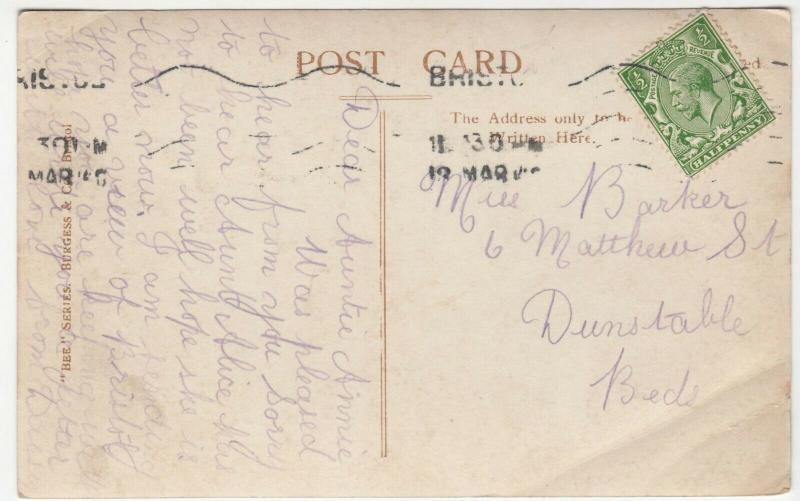 POST CARD
The Address only to be
Written Here.
BRISTOL
12.30 PM
18 MAR
POSTAGE
REVENUE
½
½
HALFPENNY
Miss Barker
6 Matthew St
Dunstable
Beds
"BEE" SERIES. BURGESS & Co. Bristol
Dear Auntie Annie
Was pleased
to hear from you Sorry
to hear Aunt Alice has
not been well hope she is
better now, I am sending
you a view of Bristol
you are keeping well
letter
from